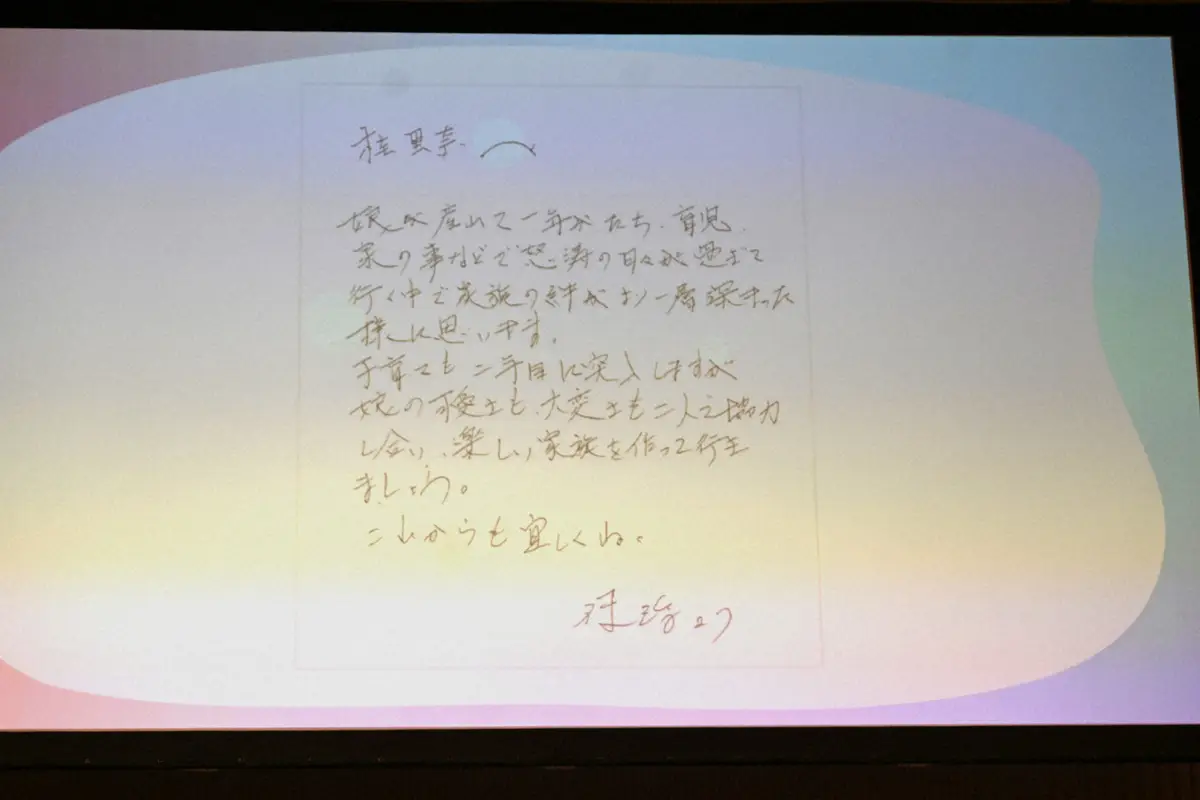 へ
娘が産れて一年がたち、育児、
家の事などで怒涛の日々が過ぎて
行く中で家族の絆がより一層深まった
様に思います。
子育ても二年目に突入しますが
娘の可愛さも、大変さも二人で協力
し合い、楽しい家族を作って行き
ましょう。
これからも宜しくね。
より